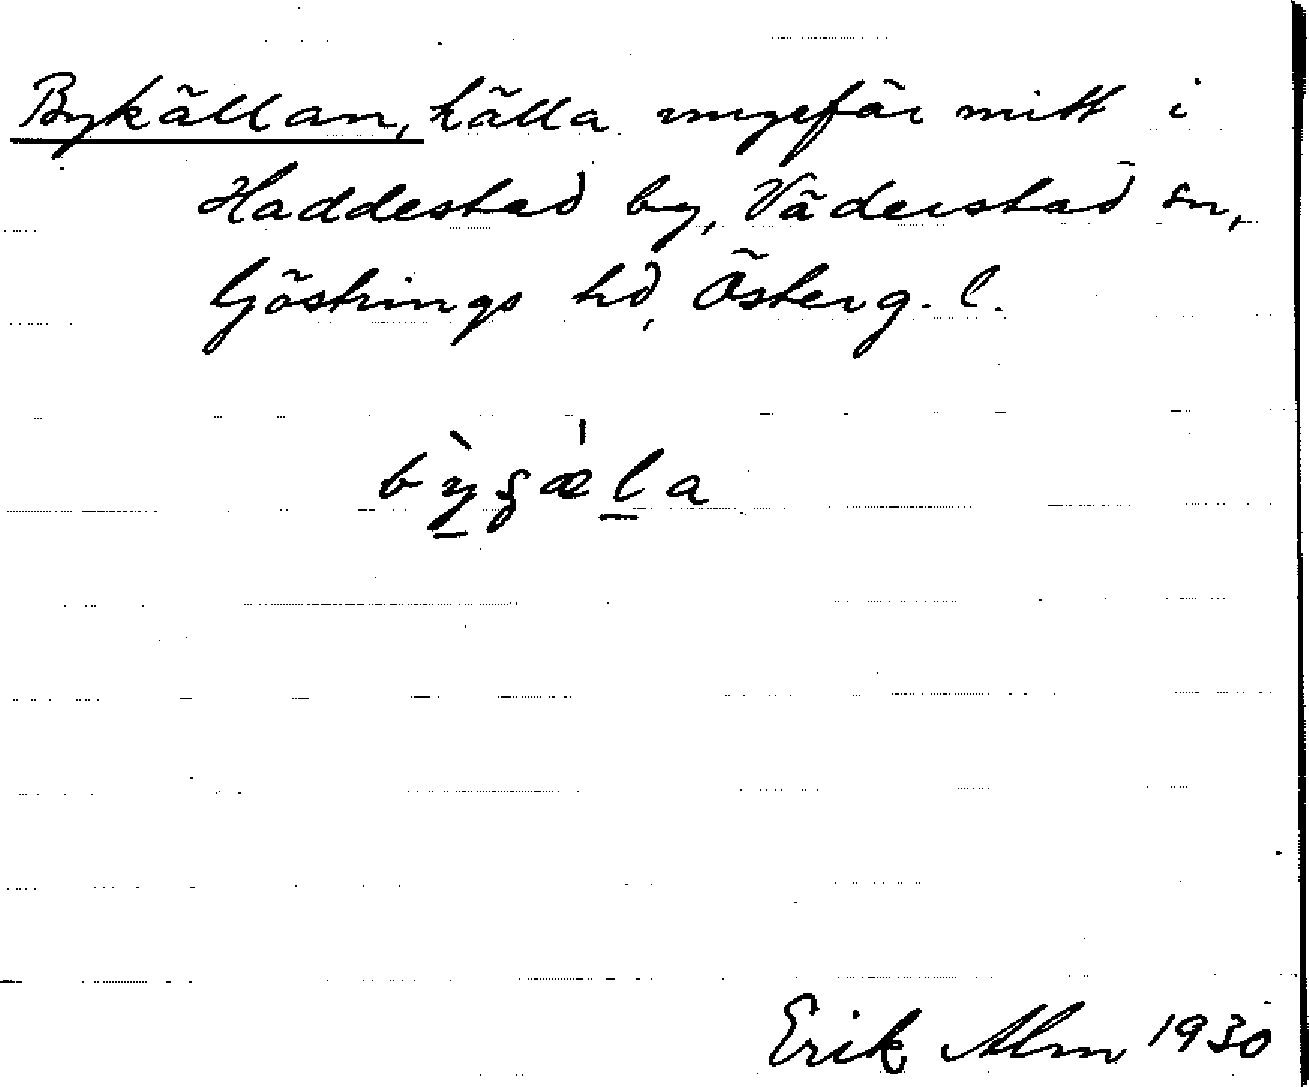 Bykällan, källa ungefär mitt i
Haddestad by, Väderstad sn,
Göstrings hd, Österg. l.
bỳʂæ̍la
Erik Alm 1930